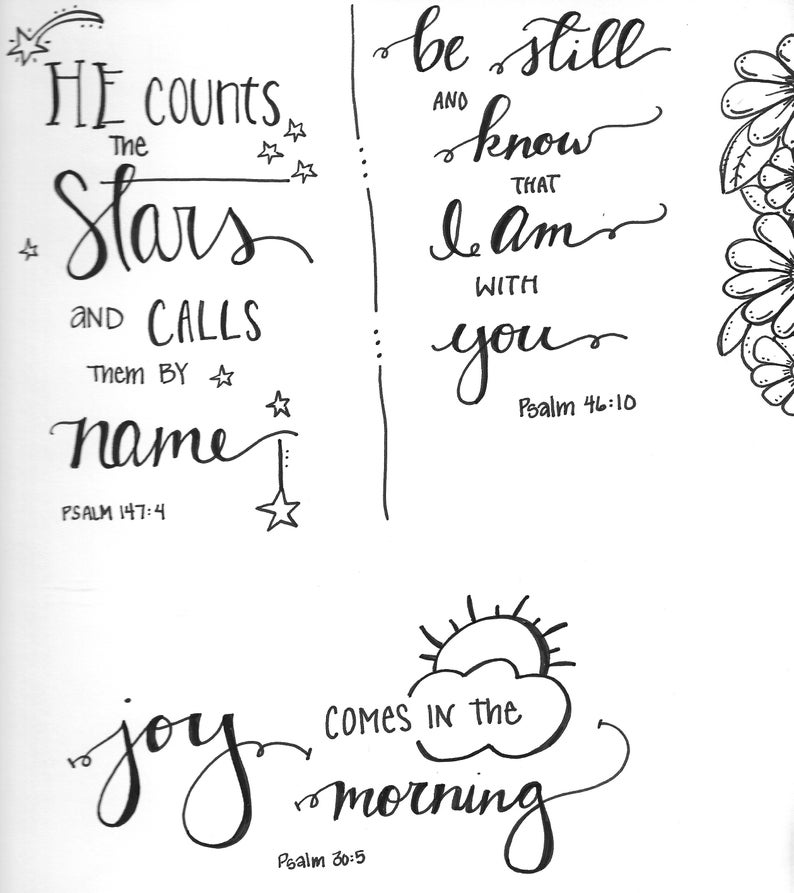 HE counts
the
Stars
and CALLS
Them BY
name
PSALM 147:4
be still
AND
know
THAT
I am
WITH
you
Psalm 46:10
joy
COMES IN the
morning
Psalm 30:5